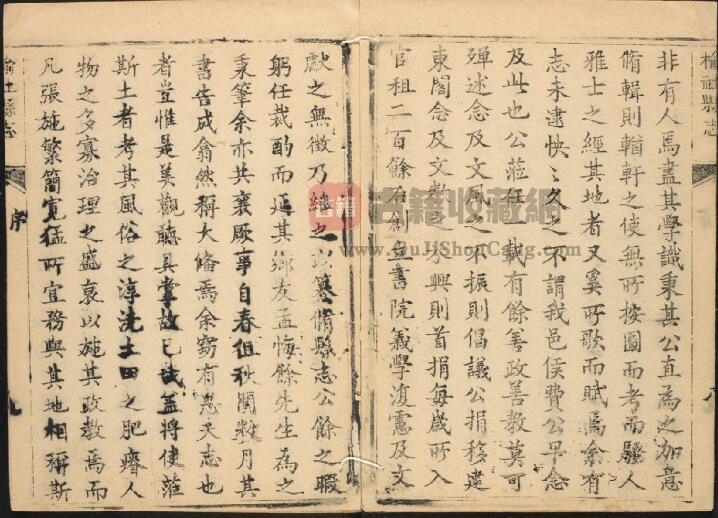 榆社縣志
非有人焉盡其學識秉其公直為之加意
脩輯則輶軒之使無所按圖而考而騷人
雅士之經其地者又奚所歌而賦焉余有
志未逮怏怏久之不謂我邑侯費公早念
及此也公蒞任一載有餘善政善教莫可
殫述念及文風之不振則倡議公捐移建
東閣念及文教之未興則首捐每歲所入
官租二百餘石創立書院義學復慮及文
獻之無徵乃繼之以纂脩縣志公餘之暇
躬任裁酌而延其鄉友孟悔餘先生為之
秉筆余亦共襄厥事自春徂秋閱數月其
書告成翕然稱大備焉余竊有思夫志也
者豈惟是美觀聽具掌故已哉蓋將使蒞
斯土者考其風俗之淳澆土田之肥瘠人
物之多寡治理之盛衰以施其政教焉而
凡張施繁簡寬猛所宜務與其地相稱斯
榆社縣志
序
古籍收藏網
www.GuJiShouCang.com